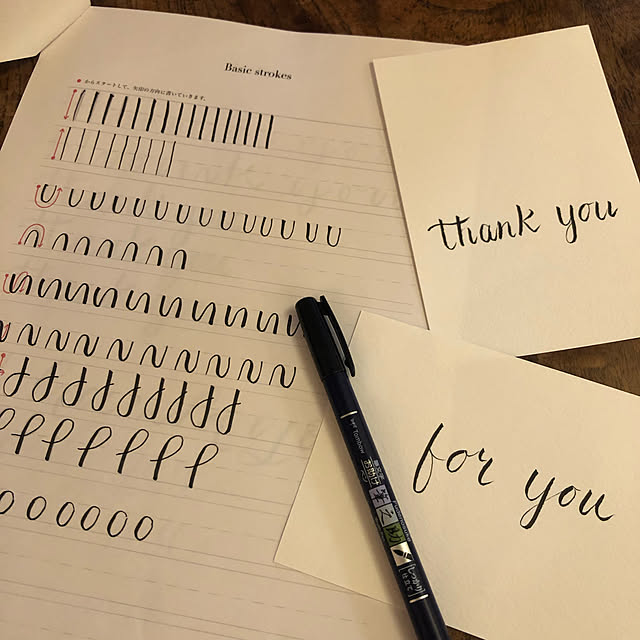 Basic strokes
●からスタートして、矢印の方向に書いていきます。
thank you
for you
Tombow
筆之助
しっかり
仕立て